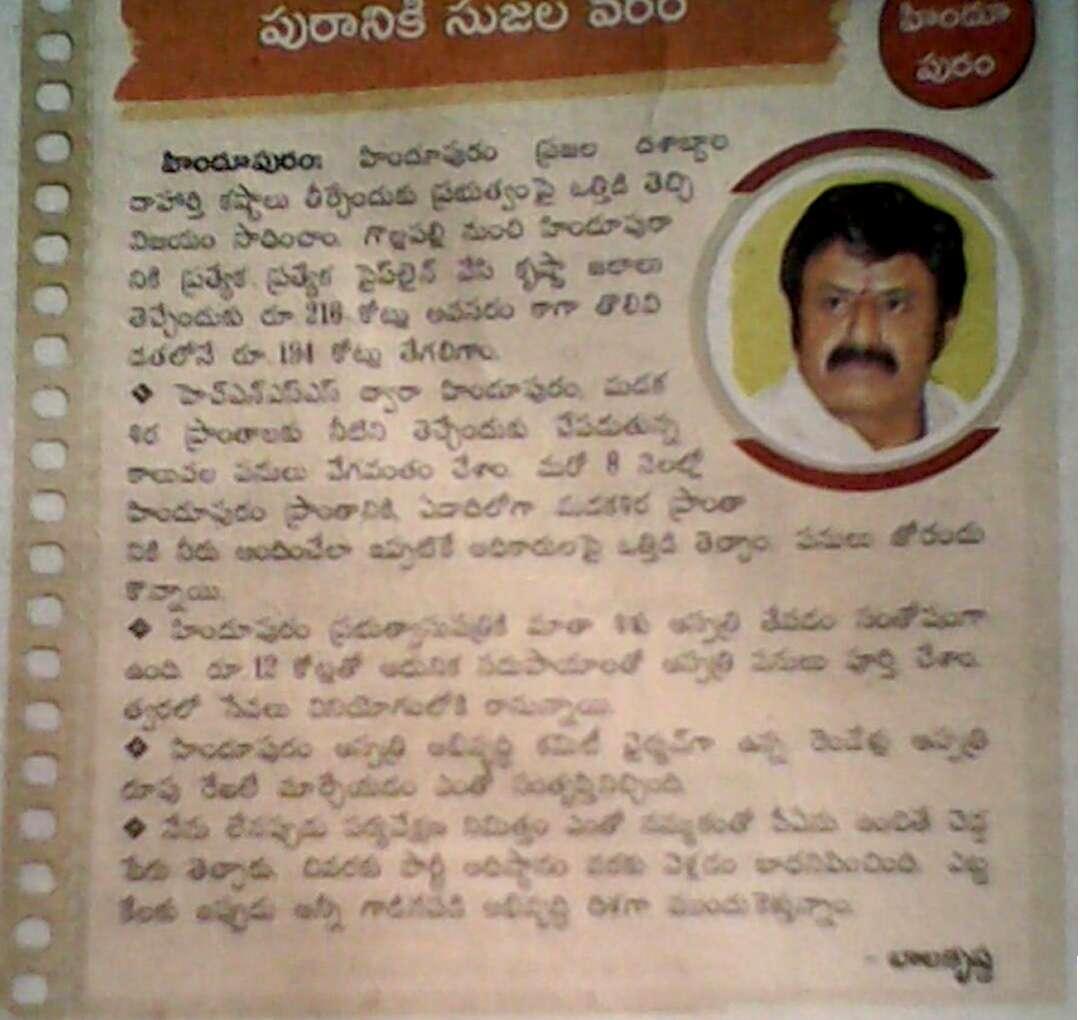 పురానికి సుజల వరం
హిందూ
పురం
హిందూపురం: హిందూపురం ప్రజల దశాబ్దాల
దాహార్తి కష్టాలు తీర్చేందుకు ప్రభుత్వంపై ఒత్తిడి తెచ్చి
విజయం సాధించాం. గొల్లపల్లి నుంచి హిందూపురా
నికి ప్రత్యేక ప్రత్యేక పైప్‌లైన్ వేసి కృష్ణా జలాలు
తెచ్చేందుకు రూ. 216 కోట్లు అవసరం కాగా తొలివి
డతలోనే రూ. 194 కోట్లు తేగలిగాం.
❖ హెచ్ఎన్ఎస్ఎస్ ద్వారా హిందూపురం, మడక
శిర ప్రాంతాలకు నీటిని తెచ్చేందుకు చేపడుతున్న
కాలువల పనులు వేగవంతం చేశాం. మరో 8 నెలల్లో
హిందూపురం ప్రాంతానికి, ఏడాదిలోగా మడకశిర ప్రాంతా
నికి నీరు అందించేలా ఇప్పటికే అధికారులపై ఒత్తిడి తెచ్చాం. పనులు జోరందు
కొన్నాయి.
❖ హిందూపురం ప్రభుత్వాసుపత్రికి మాతా శిశు ఆస్పత్రి తేవడం సంతోషంగా
ఉంది. రూ.12 కోట్లతో ఆధునిక సదుపాయాలతో ఆస్పత్రి పనులు పూర్తి చేశాం.
త్వరలో సేవలు వినియోగంలోకి రానున్నాయి.
❖ హిందూపురం ఆస్పత్రి అభివృద్ధి కమిటీ చైర్మన్‌గా ఉన్న రెండేళ్లు ఆస్పత్రి
రూపు రేఖలే మార్చేయడం ఎంతో సంతృప్తినిచ్చింది.
❖ నేను లేనప్పుడు పర్యవేక్షణ నిమిత్తం ఎంతో నమ్మకంతో పీఏను ఉంచితే చెడ్డ
పేరు తెచ్చారు. చివరకు పార్టీ అధిష్టానం వరకు వెళ్లడం బాధనిపించింది. ఎట్ట
కేలకు ఇప్పుడు అన్నీ గాడినపడి అభివృద్ధి దిశగా ముందుకెళ్తున్నాం.
- బాలకృష్ణ